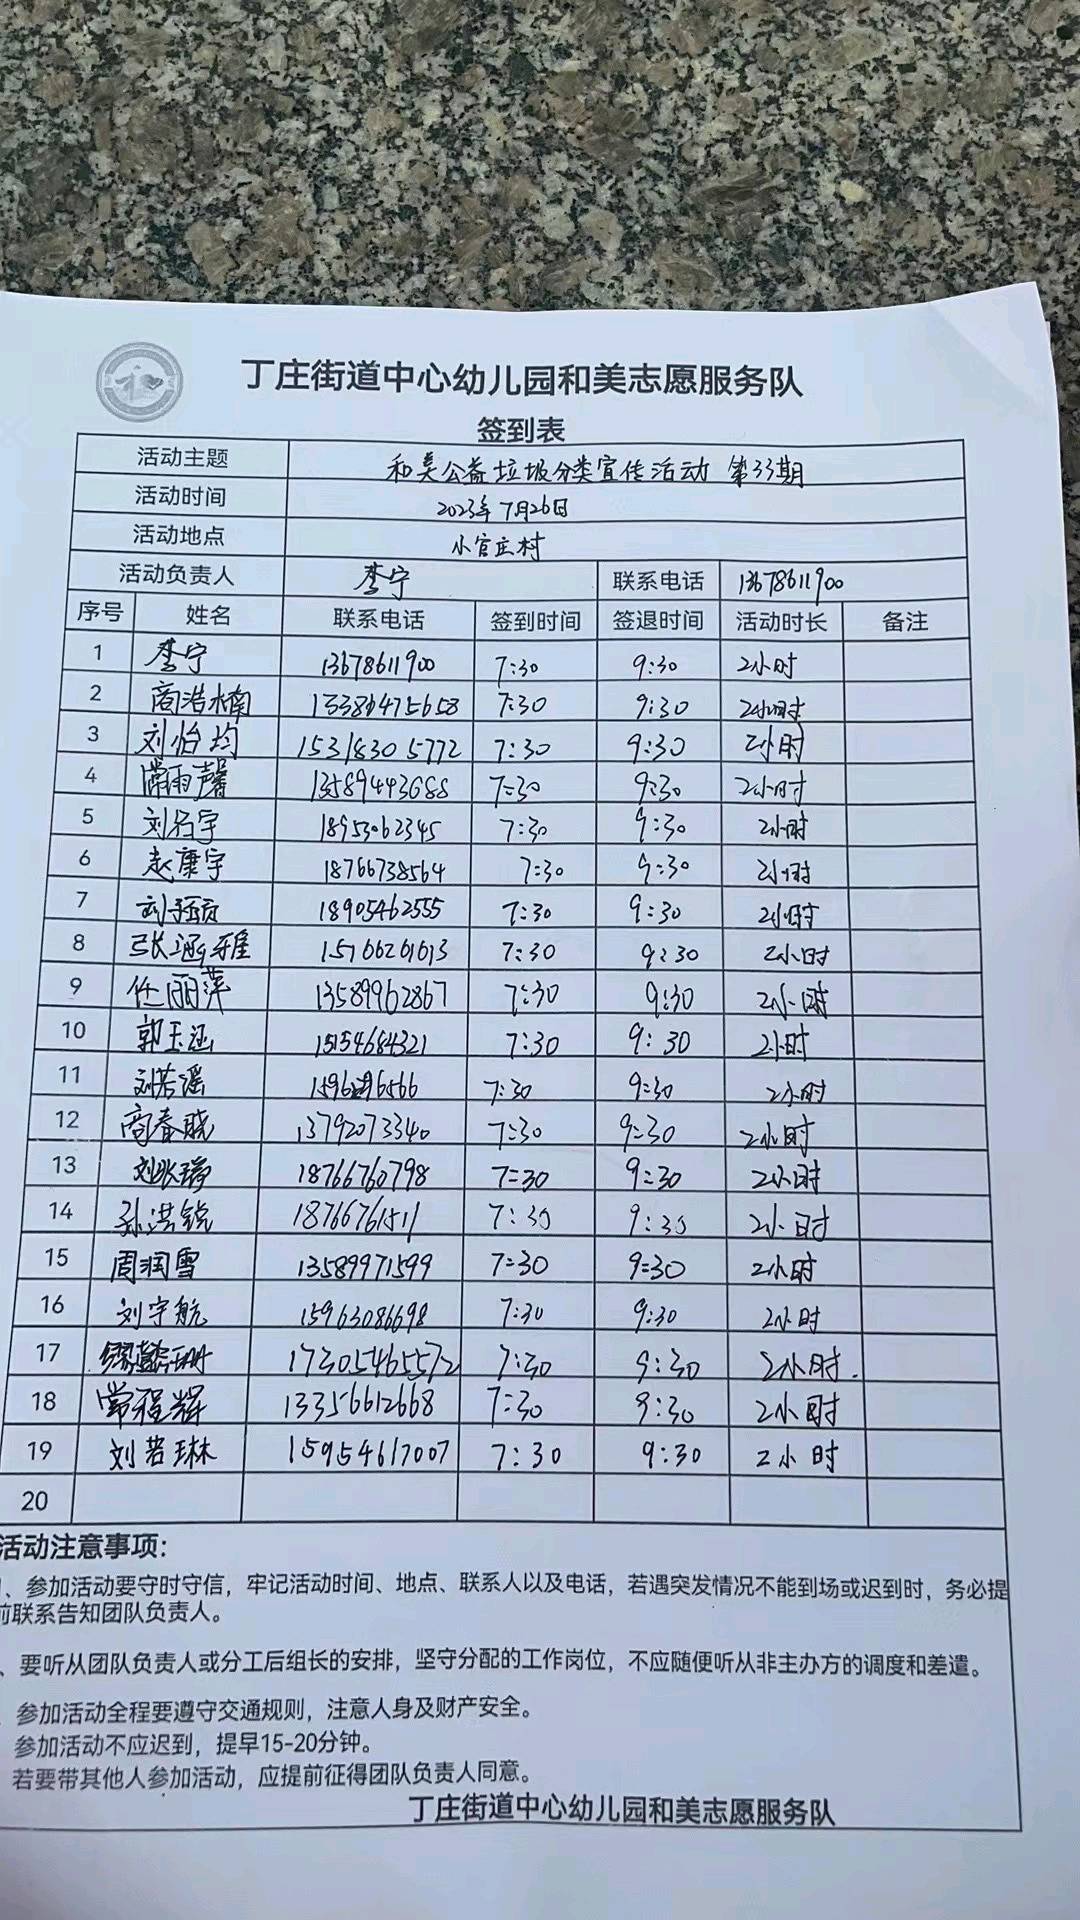 丁庄街道中心幼儿园和美志愿服务队
签到表
活动主题 和美公益垃圾分类宣传活动 第33期
活动时间 2023年7月26日
活动地点 小官庄村
活动负责人 李宁 联系电话 13678611900
序号 姓名 联系电话 签到时间 签退时间 活动时长 备注
1 李宁 13678611900 7:30 9:30 2小时
2 商浩楠 7:30 9:30 2小时
3 刘怡均 15318305772 7:30 9:30 2小时
4 常雨馨 13589443688 7:30 9:30 2小时
5 刘名宇 18953062345 7:30 9:30 2小时
6 赵康宇 18766738564 7:30 9:30 2小时
7 18905462555 7:30 9:30 2小时
8 张涵雅 15166201613 7:30 9:30 2小时
9 任丽萍 13589962867 7:30 9:30 2小时
10 郭玉涵 15154684321 7:30 9:30 2小时
11 刘若谣 7:30 9:30 2小时
12 商春晓 13792073340 7:30 9:30 2小时
13 18766760798 7:30 9:30 2小时
14 孙洪锐 18766761511 7:30 9:30 2小时
15 周润雪 13589971599 7:30 9:30 2小时
16 刘宇航 15963086698 7:30 9:30 2小时
17 17305465572 7:30 9:30 2小时.
18 常程辉 13356612668 7:30 9:30 2小时
19 刘若琳 15954617007 7:30 9:30 2小时
20
活动注意事项:
、参加活动要守时守信，牢记活动时间、地点、联系人以及电话，若遇突发情况不能到场或迟到时，务必提
前联系告知团队负责人。
、要听从团队负责人或分工后组长的安排，坚守分配的工作岗位，不应随便听从非主办方的调度和差遣。
参加活动全程要遵守交通规则，注意人身及财产安全。
参加活动不应迟到，提早15-20分钟。
若要带其他人参加活动，应提前征得团队负责人同意。
丁庄街道中心幼儿园和美志愿服务队